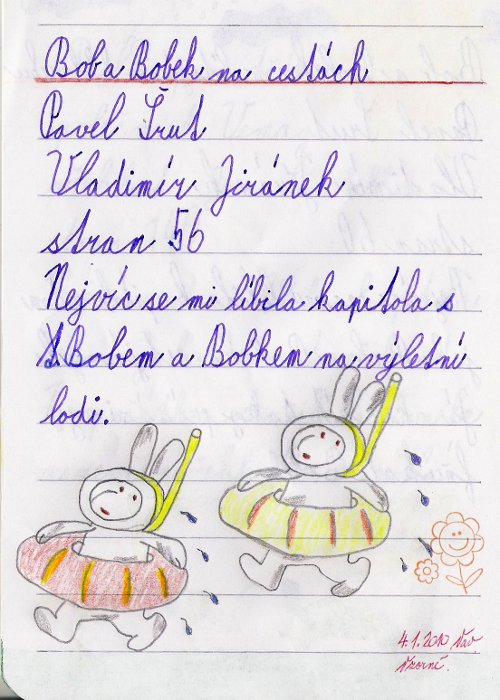 Bob a Bobek na cestách
Pavel Šrut
Vladimír Jiránek
stran 56
Nejvíc se mi líbila kapitola s
Bobem a Bobkem na výletní
lodi.
4.1.2010
Vzorné.